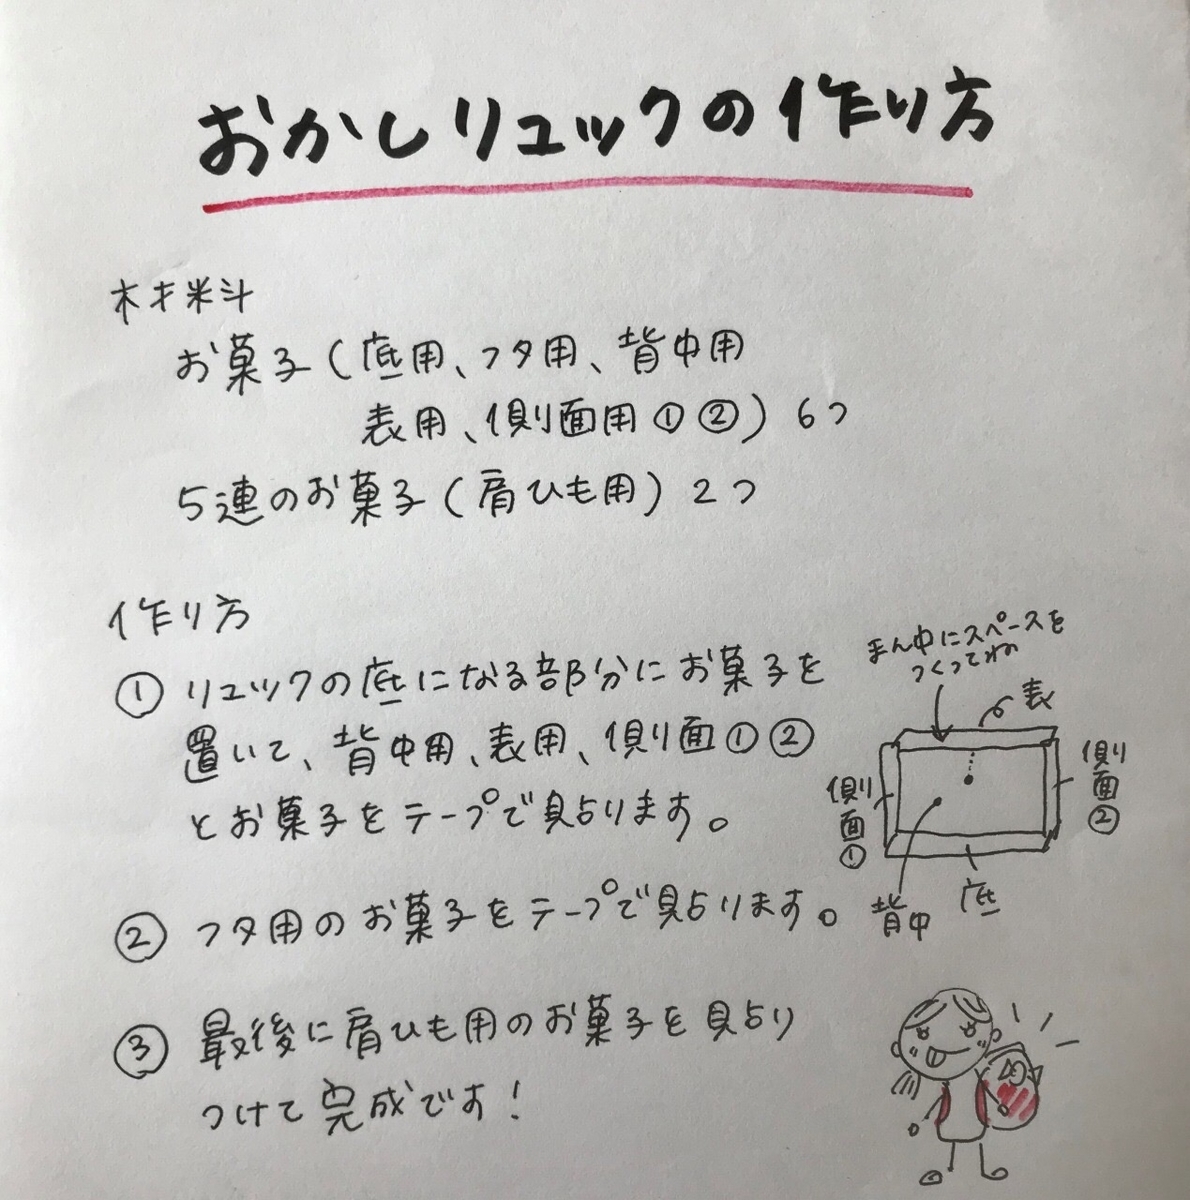 おかしリュックの作り方
材料
お菓子(底用、フタ用、背中用
表用、側面用①②)6つ
5連のお菓子(肩ひも用)2つ
作り方
①リュックの底になる部分にお菓子を
置いて、背中用、表用、側面①②
とお菓子をテープで貼ります。
まん中にスペースを
つくってね
表
側面①
側面②
背中
底
②フタ用のお菓子をテープで貼ります。
③最後に肩ひも用のお菓子を貼り
つけて完成です!